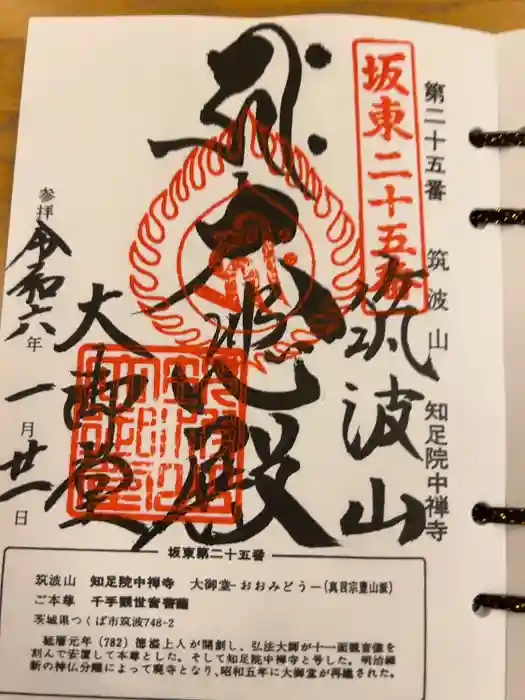 第二十五番 筑波山 知足院中禅寺
坂東二十五番
筑波山
大悲殿
大御堂
参拝 令和六年一月廿一日
坂東第二十五番
筑波山 知足院中禅寺 大御堂-おおみどう-(真言宗豊山派)
ご本尊 千手観世音菩薩
茨城県つくば市筑波748-2
延暦元年(782)徳溢上人が開創し、弘法大師が十一面観音像を
刻んで安置して本尊とした。そして知足院中禅寺と号した。明治維
新の神仏分離によって廃寺となり、昭和五年に大御堂が再建された。